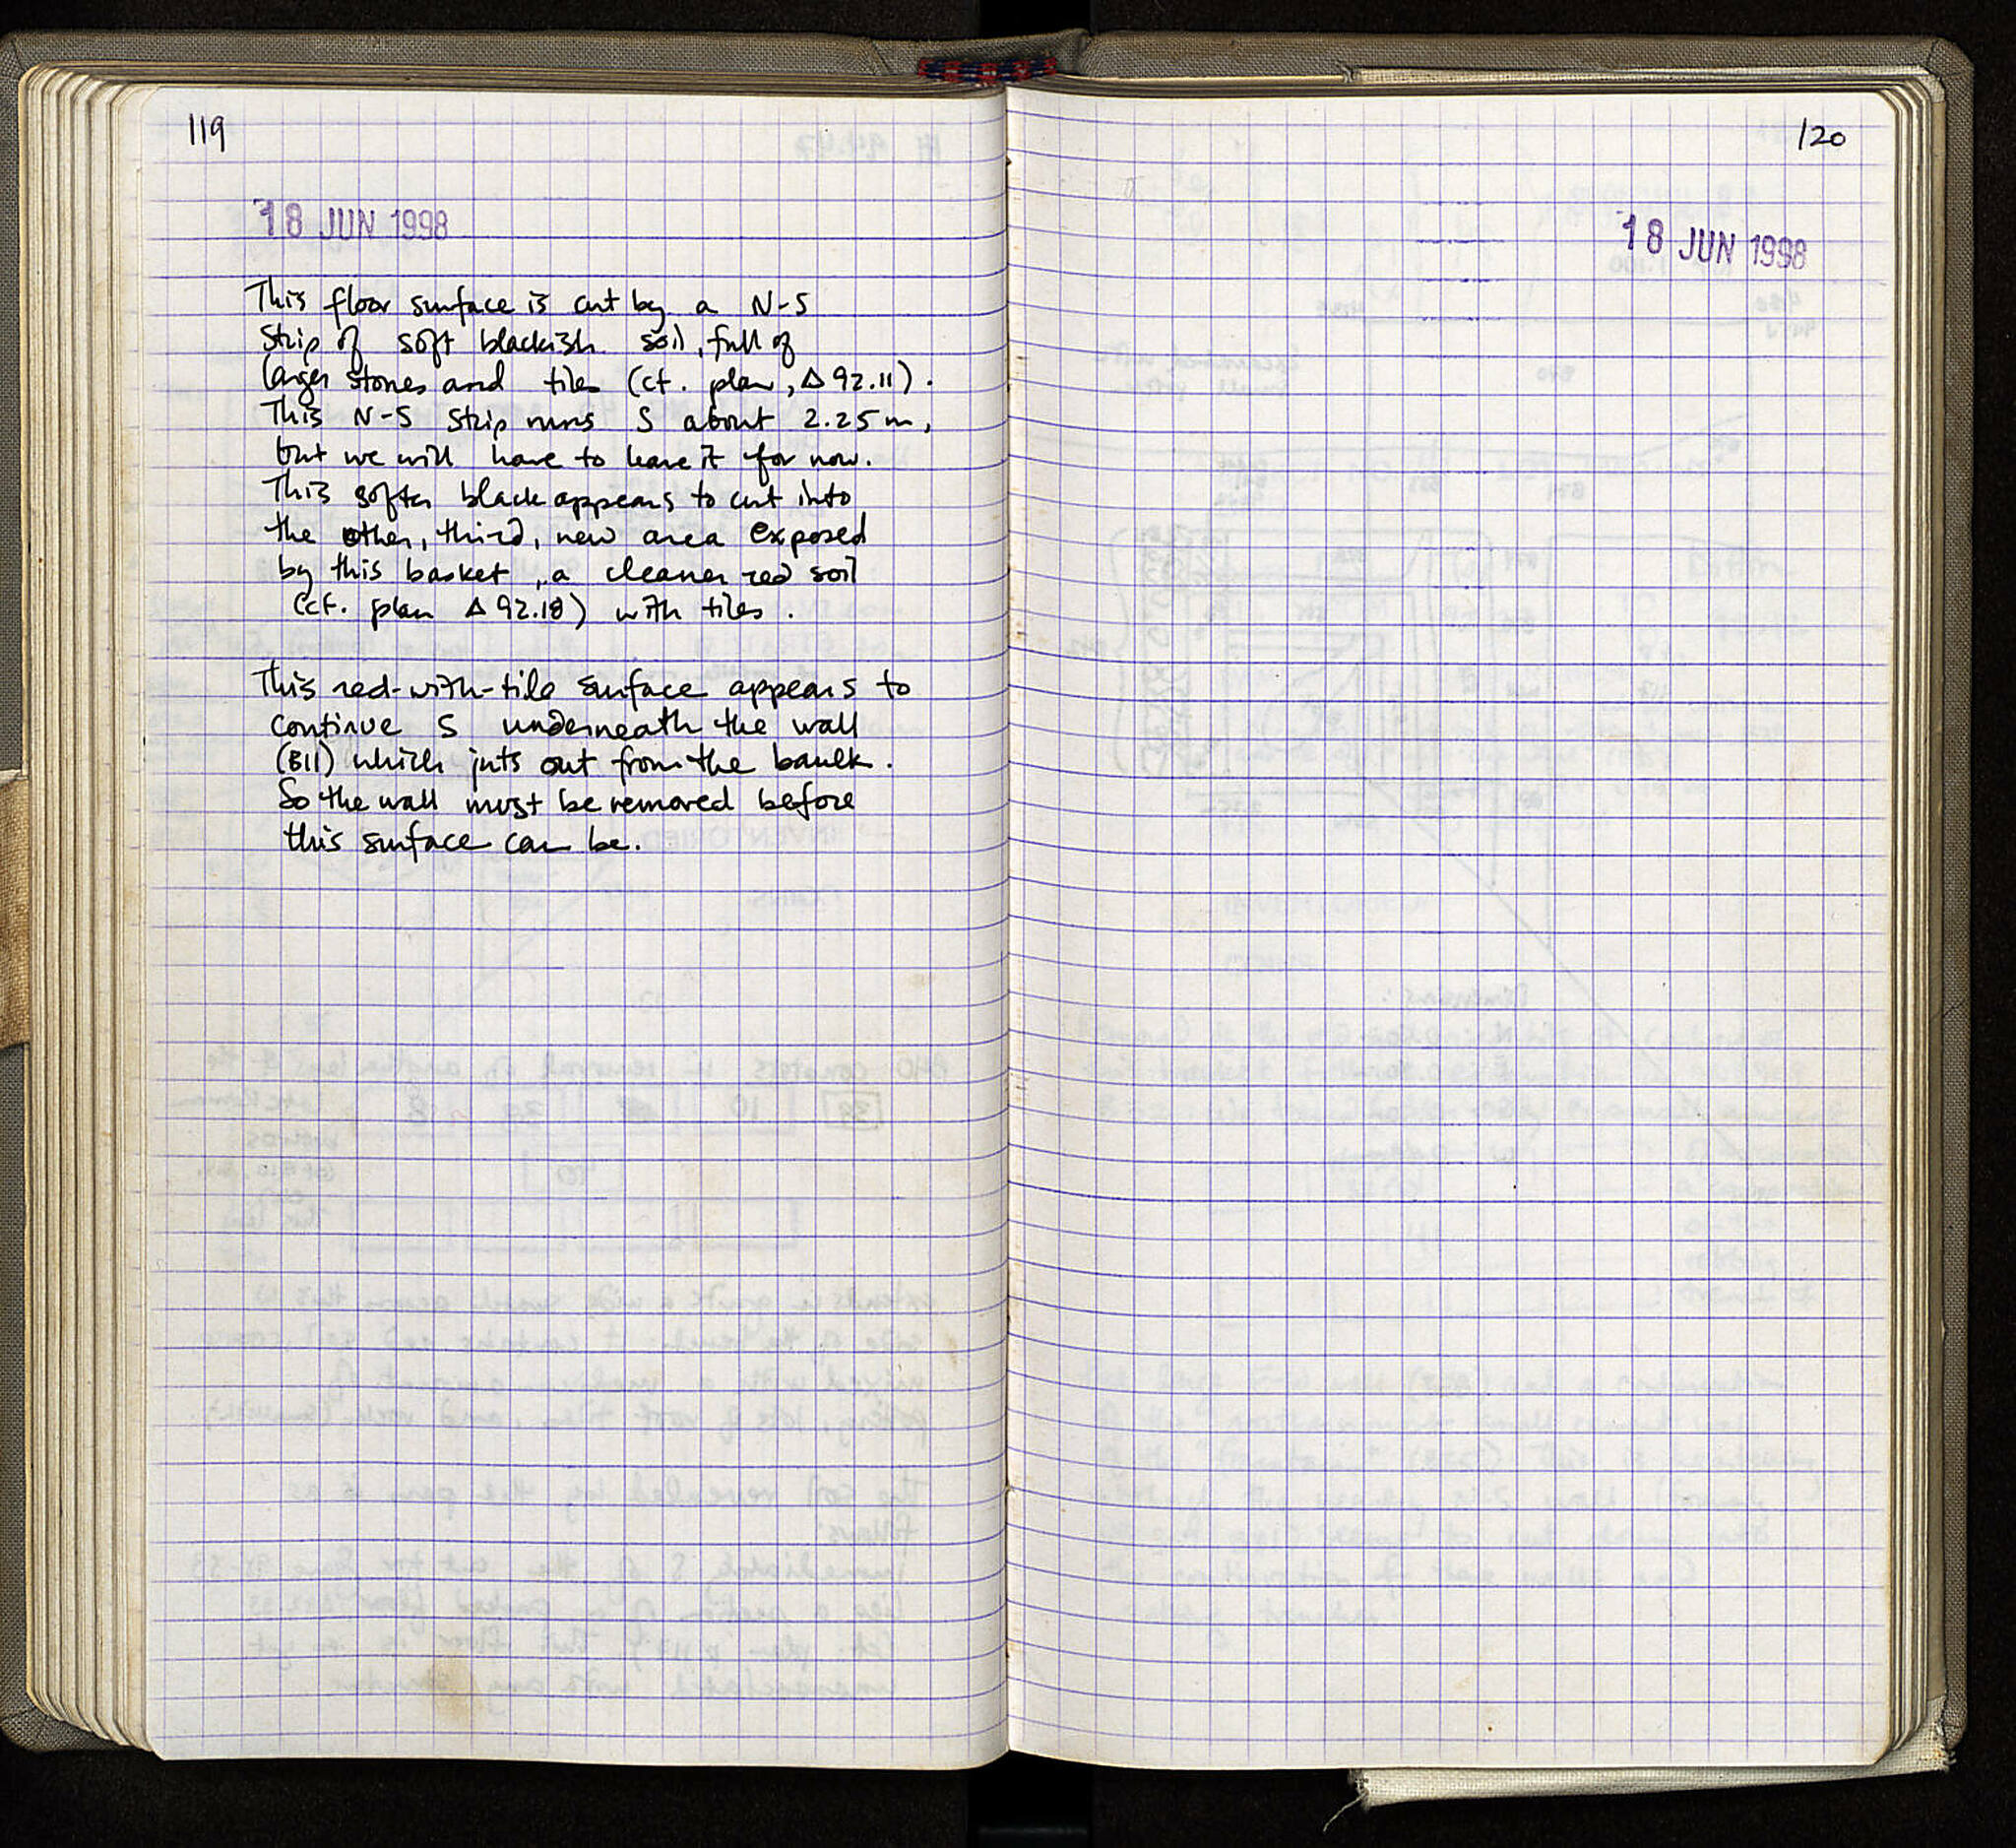 119
18 JUN 1998
This floor surface is cut by a N-S
strip of soft blackish soil, full of
larger stones and tiles (cf. plan, Δ 92.11).
This N-S strip runs S about 2.25 m,
but we will have to leave it for now.
This softer black appears to cut into
the other, third, new area exposed
by this basket, a cleaner red soil
(cf. plan Δ 92.18) with tiles.
This red-with-tile surface appears to
continue S underneath the wall
(B11) which juts out from the baulk.
So the wall must be removed before
this surface can be.
120
18 JUN 1998